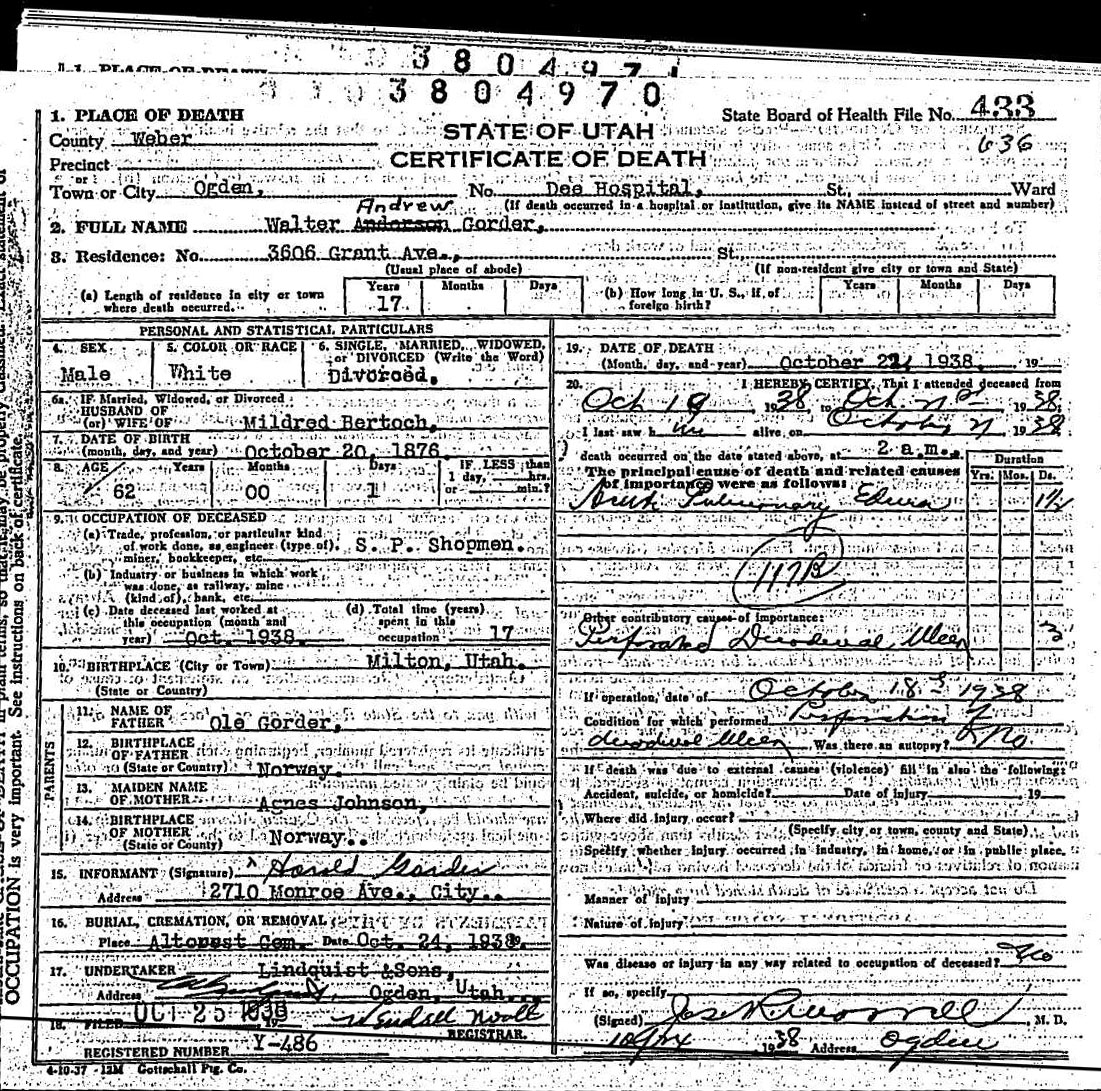 3804971
1. PLACE OF DEATH
3804970
1. PLACE OF DEATH
State Board of Health File No. 433
County Weber
STATE OF UTAH
636
Precinct
CERTIFICATE OF DEATH
Town or City Ogden, No. Dee Hospital, St., Ward
(If death occurred in a hospital or institution, give its NAME instead of street and number)
Andrew
2. FULL NAME Walter Anderson Gorder,
3. Residence: No. 3606 Grant Ave., St.
(Usual place of abode) (If non-resident give city or town and State)
(a) Length of residence in city or town where death occurred. Years 17 Months Days
(b) How long in U. S., if of foreign birth? Years Months Days
PERSONAL AND STATISTICAL PARTICULARS
4. SEX Male
5. COLOR OR RACE White
6. SINGLE, MARRIED, WIDOWED, or DIVORCED (Write the Word) Divorced.
6a. IF Married, Widowed, or Divorced
HUSBAND OF
(or) WIFE OF Mildred Bertoch.
7. DATE OF BIRTH
(month, day, and year) October 20, 1876.
8. AGE Years Months Days IF LESS than
62 00 1 1 day, hrs.
or min.?
9. OCCUPATION OF DECEASED
(a) Trade, profession, or particular kind
of work done, as engineer (type of), S. P. Shopmen.
miner, bookkeeper, etc.
(b) Industry or business in which work
was done, as railway, mine
(kind of), bank, etc.
(c) Date deceased last worked at
this occupation (month and
year) Oct. 1938.
(d) Total time (years)
spent in this
occupation 17
10. BIRTHPLACE (City or Town) Milton, Utah.
(State or Country)
PARENTS
11. NAME OF
FATHER Ole Gorder,
12. BIRTHPLACE
OF FATHER
(State or Country) Norway.
13. MAIDEN NAME
OF MOTHER Agnes Johnson,
14. BIRTHPLACE
OF MOTHER
(State or County) Norway.
15. INFORMANT (Signature) Harold Gorder
Address 2710 Monroe Ave., City.
16. BURIAL, CREMATION, OR REMOVAL
Place Cem. Date Oct. 24, 1938.
17. UNDERTAKER Lindquist & Sons,
Address Ogden, Utah.
18. FILED OCT 25 1938 19
REGISTRAR.
REGISTERED NUMBER Y-486
4-10-37 -12M Gottschall Ptg. Co.
19. DATE OF DEATH
(Month, day, and year) October 21, 1938. 19
20. I HEREBY CERTIFY, That I attended deceased from
Oct 19 1938 to Oct 21st 1938
I last saw him alive on October 21 1938
death occurred on the date stated above, at 2 a.m.
The principal cause of death and related causes
of importance were as follows:
Duration
Yrs. Mos. Ds.
Acute Pulmonary Edema 1½
117B
Other contributory causes of importance:
Perforated Duodenal Ulcer 3
If operation, date of October 18th 1938
Condition for which performed Perforation of
duodenal Ulcer Was there an autopsy? No
If death was due to external causes (violence) fill in also the following:
Accident, suicide, or homicide? Date of injury 19
Where did injury occur?
(Specify city or town, county and State)
Specify whether injury occurred in industry, in home, or in public place,
Manner of injury
Nature of injury
Was disease or injury in any way related to occupation of deceased? No
If so, specify
(Signed) M. D.
10/24 1938 Address Ogden
OCCUPATION is very important. See instructions on back of certificate.